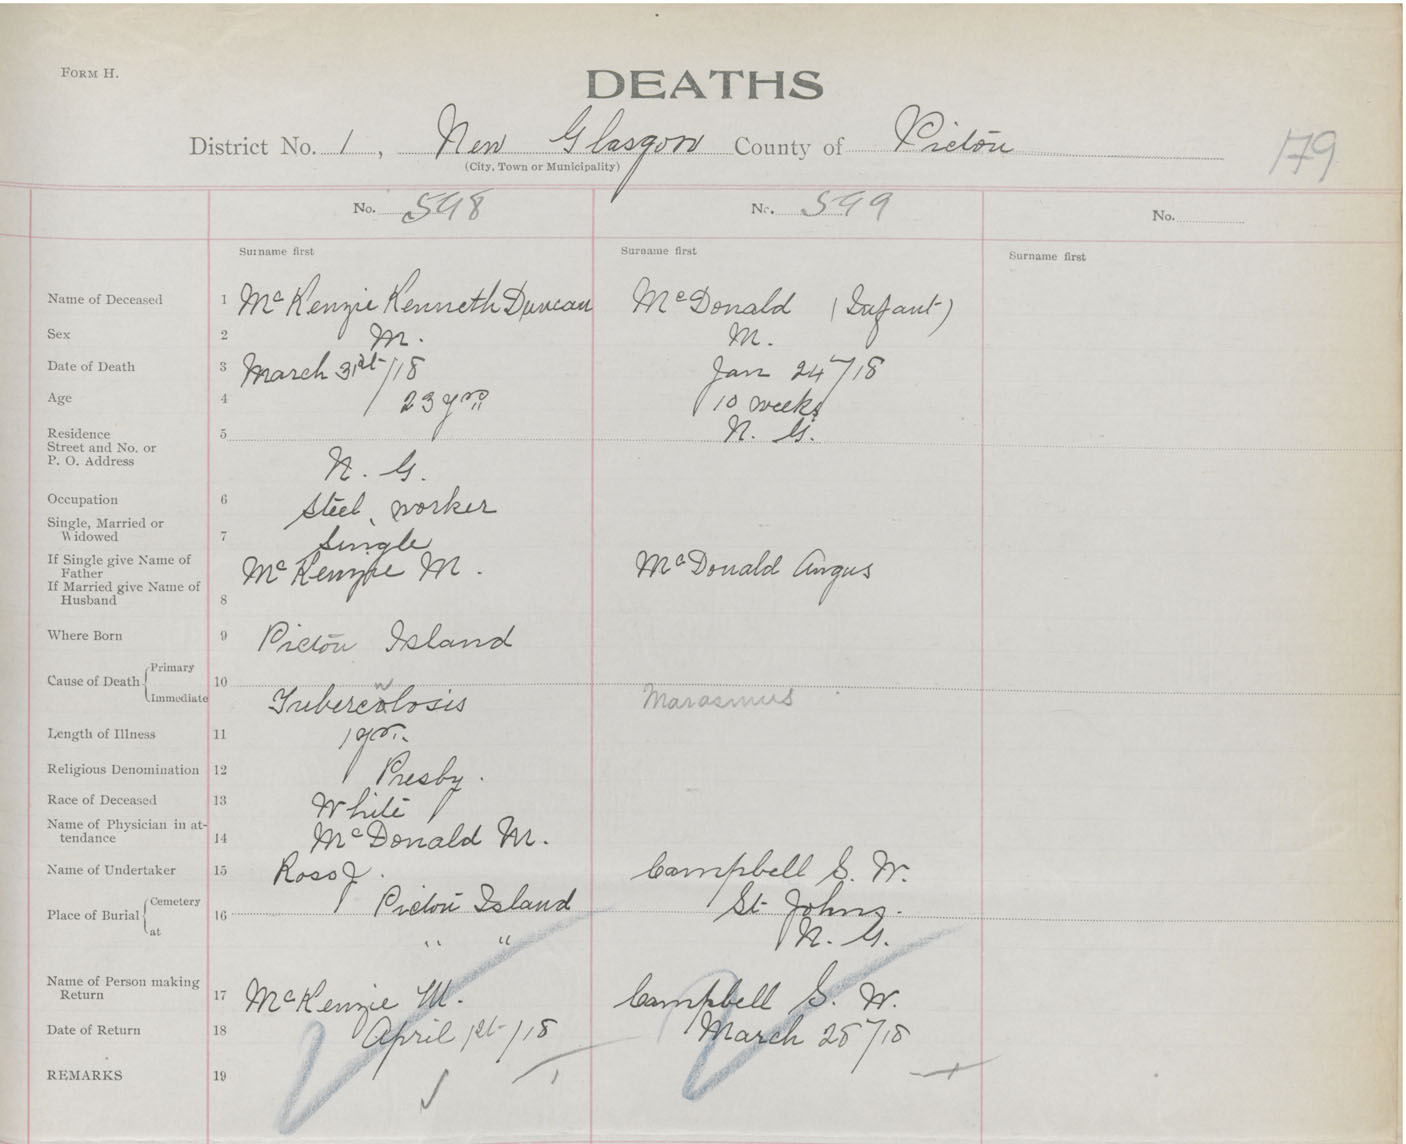 FORM H.
DEATHS
District No. 1, New Glasgow County of Pictou
(City, Town or Municipality)
179
No. 598 No. 599 No.
Surname first Surname first Surname first
Name of Deceased 1 McKenzie Kenneth Duncan McDonald (Infant)
Sex 2 M. M.
Date of Death 3 March 31st/18 Jan 24/18
Age 4 23 yrs 10 weeks
Residence 5 N. G.
Street and No. or
P. O. Address N. G.
Occupation 6 Steel worker
Single, Married or
Widowed 7 Single
If Single give Name of
Father McKenzie M. McDonald Angus
If Married give Name of
Husband 8
Where Born 9 Pictou Island
Cause of Death Primary 10
Immediate Tubercolosis Marasmus
u
Length of Illness 11 1 yr.
Religious Denomination 12 Presby.
Race of Deceased 13 White
Name of Physician in at-
tendance 14 McDonald M.
Name of Undertaker 15 Ross J. Campbell S. W.
Place of Burial Cemetery 16 Pictou Island St Johns.
at " " N. G.
Name of Person making
Return 17 McKenzie M. Campbell S. W.
Date of Return 18 April 1st/18 March 28/18
REMARKS 19